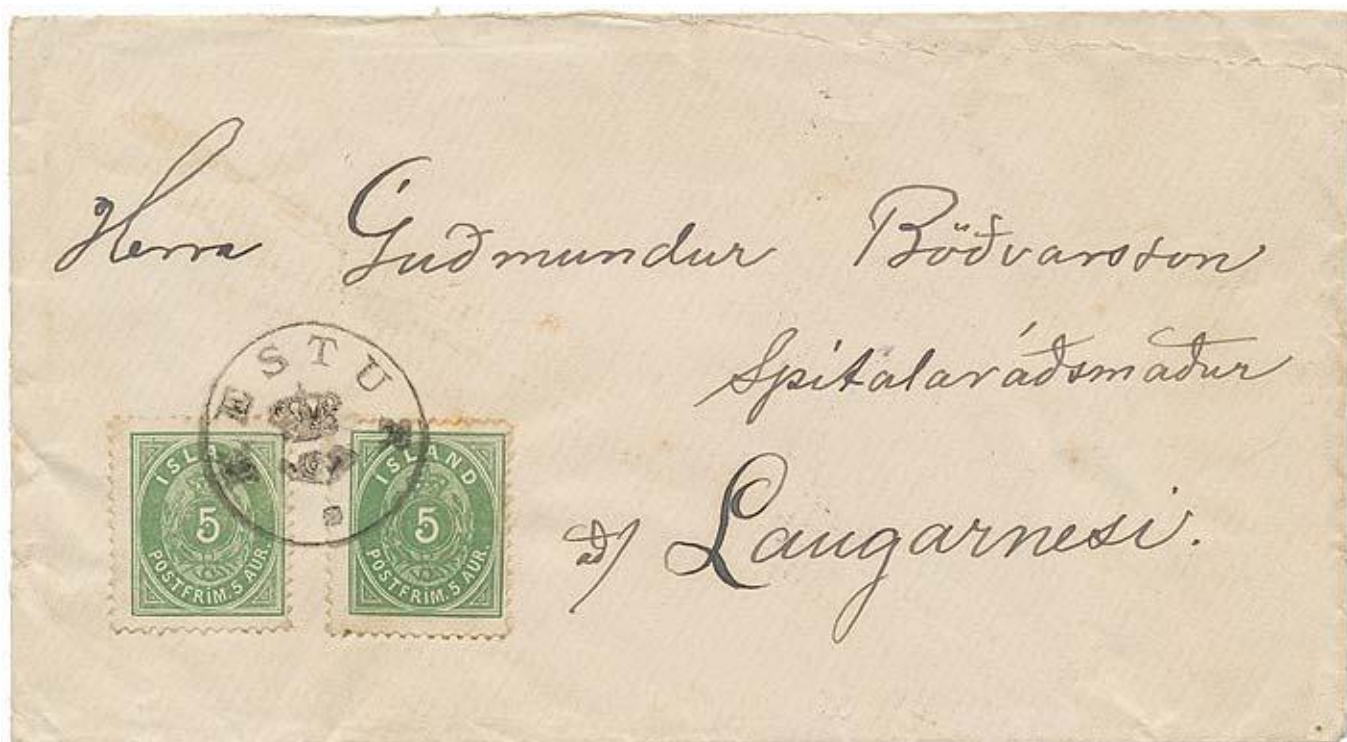 Herra Guðmundur Böðvarsson
Spítalaráðsmaður
að/ Laugarnesi.
HESTUR
ISLAND
5
POSTFRIM. 5 AUR.
ISLAND
5
POSTFRIM. 5 AUR.